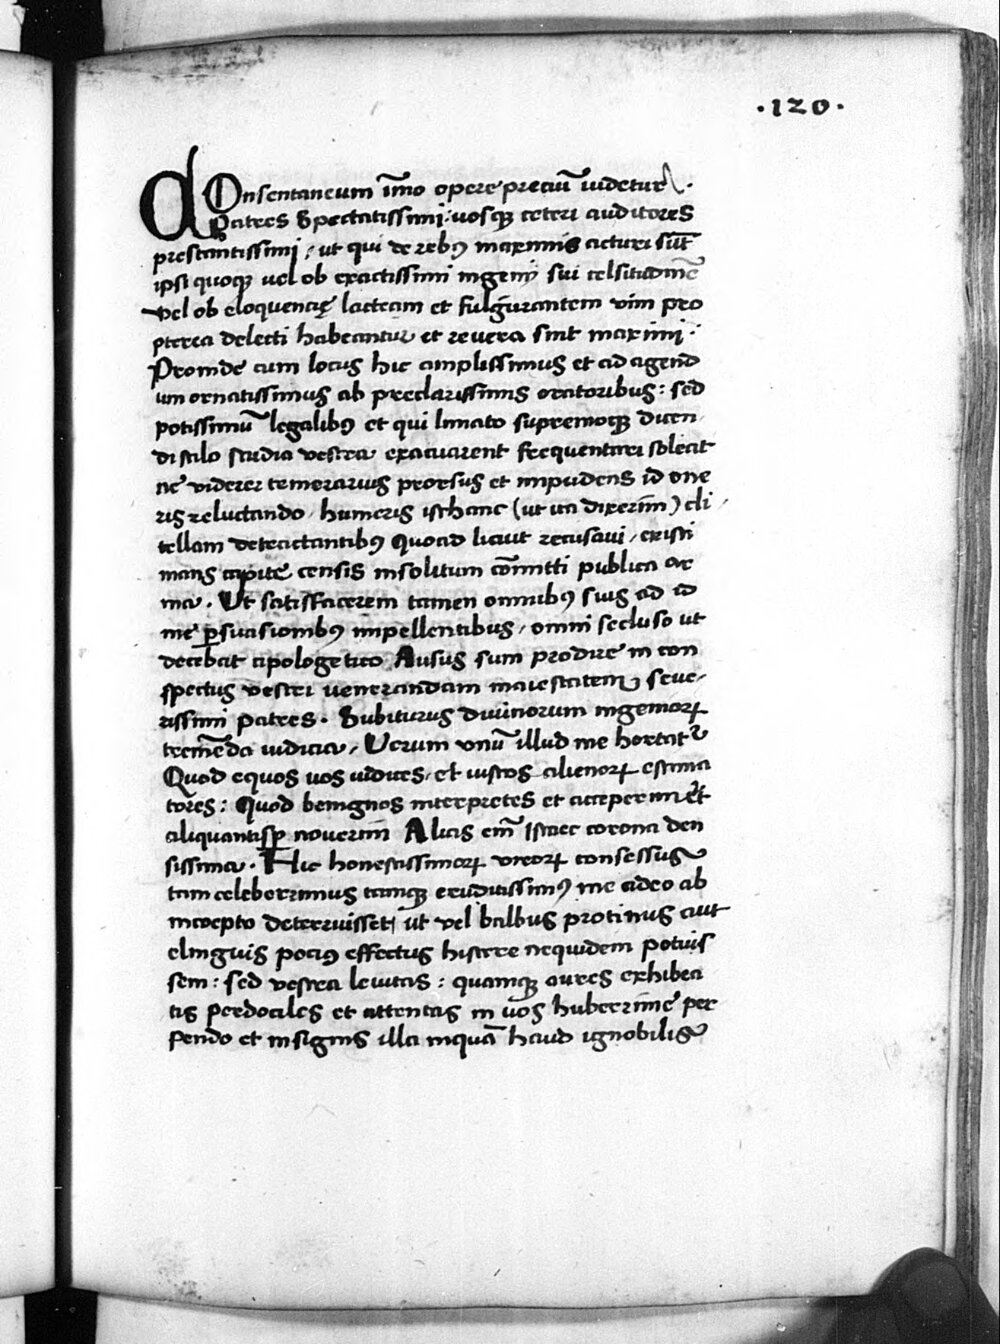 ·120·
COnsentaneum īmo opere preciū uidetur
Patres Spectatissimi: uosqȝ ceteri auditores
prestantissimi, ut qui de rebꝰ maximis acturi sūt
ipsi quoqȝ uel ob exactissimi ingenij sui celsitudinē
vel ob eloquencię lacteam et fulgurantem vim pro
pterea delecti habeantur et reuera sint maximi.
Proinde cum locus hic amplissimus et ad agend
um ornatissimus ab preclarissimis oratoribus: sed
potissimū legalibꝰ et qui limato supremoqȝ dicen
di stilo studia vestra exacuarent frequentari soleat
ne viderer temerarius prorsus et impudens id one
ris reluctando, humeris isthanc (ut ita dixerim) cli
tellam detractantibꝰ quoad licuit recusaui, existi
mans capite censis insolitum cōmitti publica ar
ma. Ut satisfacerem tamen omnibꝰ suis ad id
me ꝑsuasionibꝰ impellentibus, omni secluso ut
decebat apologetico Ausus sum prodire in con
spectus vestri uenerandam maiestatem seue
rissimi patres. Subiturus diuinorum ingeniorꝝ
tremēda iudicia, Verum vnū illud me hortatᷣ
Quod equos uos iudices, et iustos alienorꝝ estima
tores: Quod benignos interpretes et acceperim et
aliquantisꝑ nouerim Alias em̄ Istaec corona den
sissima. Hic honestissimorꝝ virorꝝ consessus
tam celeberrimus tamqȝ eruditissimꝰ me adeo ab
incoepto deterruisset, ut vel balbus protinus aut
elinguis pociꝰ effectus hiscere nequidem potuis
sem: sed vestra leuitas: quamqȝ aures exhibea
tis perdociles et attentas in uos huberrime per
pendo et insignis illa inquā haud ignobilis